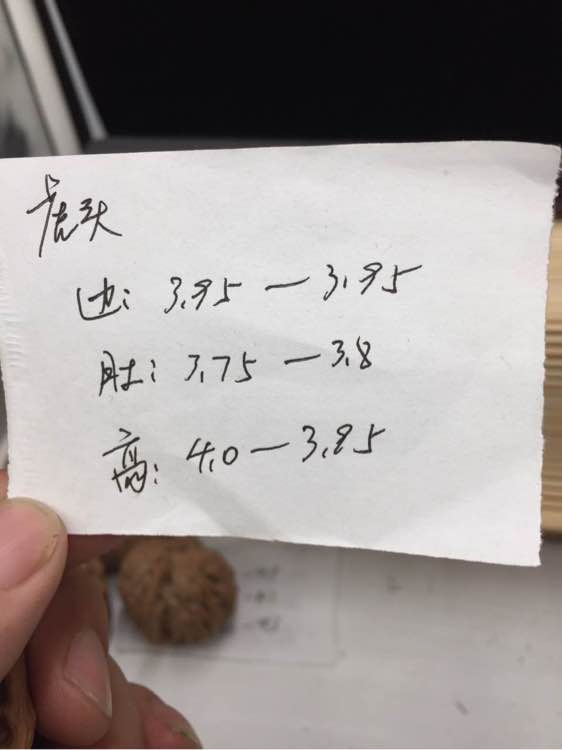 虎头
边: 3.95 — 3.95
肚: 3.75 — 3.8
高: 4.0 — 3.95